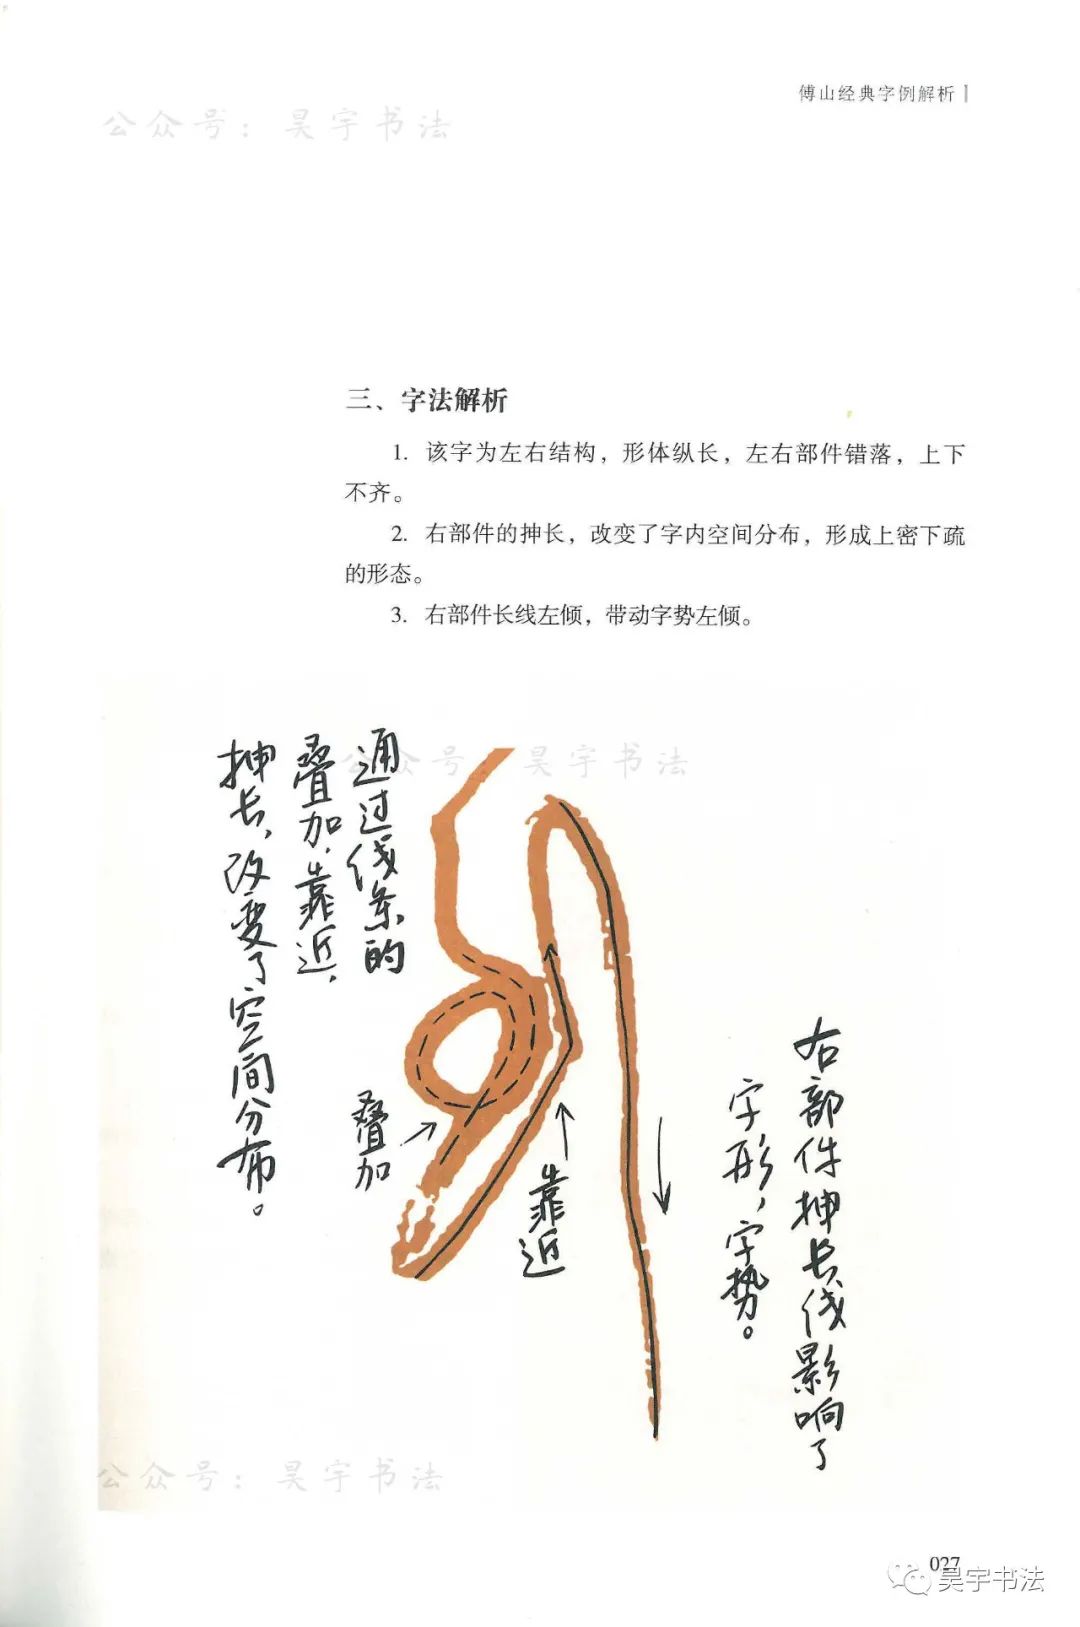 傅山经典字例解析
公众号：昊宇书法
三、字法解析
1. 该字为左右结构，形体纵长，左右部件错落，上下
不齐。
2. 右部件的抻长，改变了字内空间分布，形成上密下疏
的形态。
3. 右部件长线左倾，带动字势左倾。
公众号：昊宇书法
通过线条的
叠加、靠近、
抻长，改变了空间分布。
叠加
靠近
右部件抻长线影响了
字形，字势。
公众号：昊宇书法
027
昊宇书法